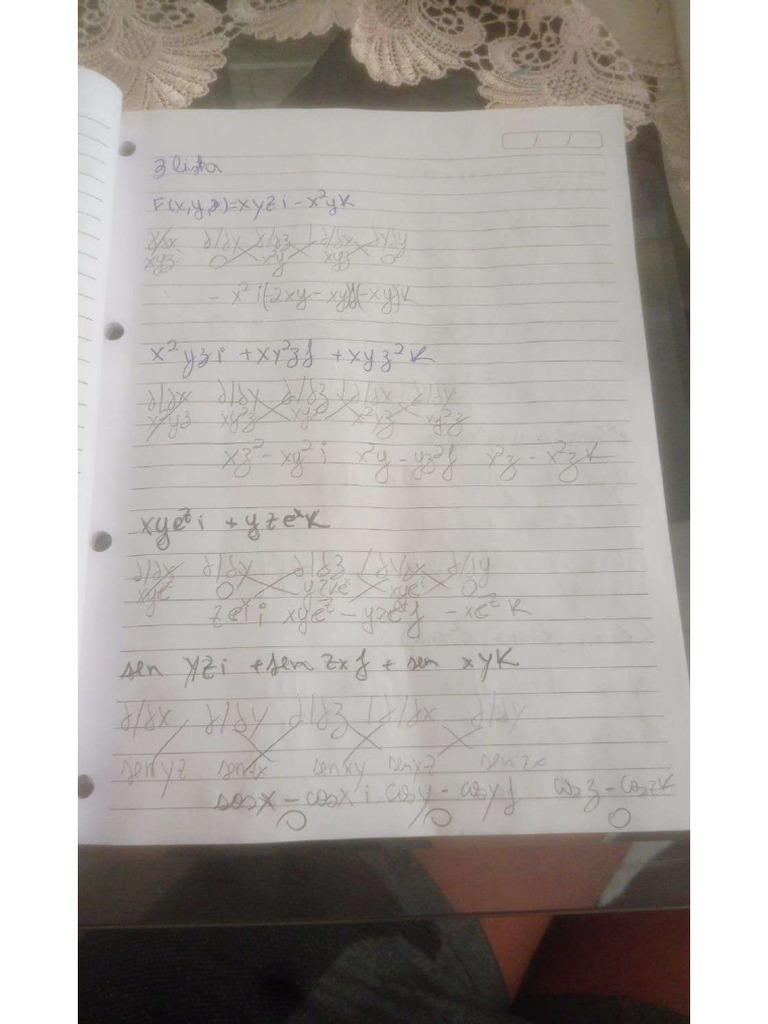 3 lista
F(x,y,z)=xyzi - x²yK
∂/∂x ∂/∂y ∂/∂z ∂/∂x ∂/∂y
xyz 0 x²y xyz 0
- x² i(-2xy - xy)j(-xy)K
x²yzi + xy²zj + xyz²K
∂/∂x ∂/∂y ∂/∂z ∂/∂x ∂/∂y
x²yz xy²z xyz² x²yz xy²z
xz² - xy² i x²y - yz²j x²z - x²zK
xyeᶻi + yzeˣK
∂/∂x ∂/∂y ∂/∂z ∂/∂x ∂/∂y
xyeᶻ 0 xyeᶻ 0
zeˣi xyeᶻ - yzeˣj - xeᶻ K
sen yzi + sen zxj + sen xyK
∂/∂x ∂/∂y ∂/∂z ∂/∂x ∂/∂y
sen yz sen zx sen xy sen yz sen zx
cosx - cosx i cosy - cosyj cosz - coszK
0 0 0